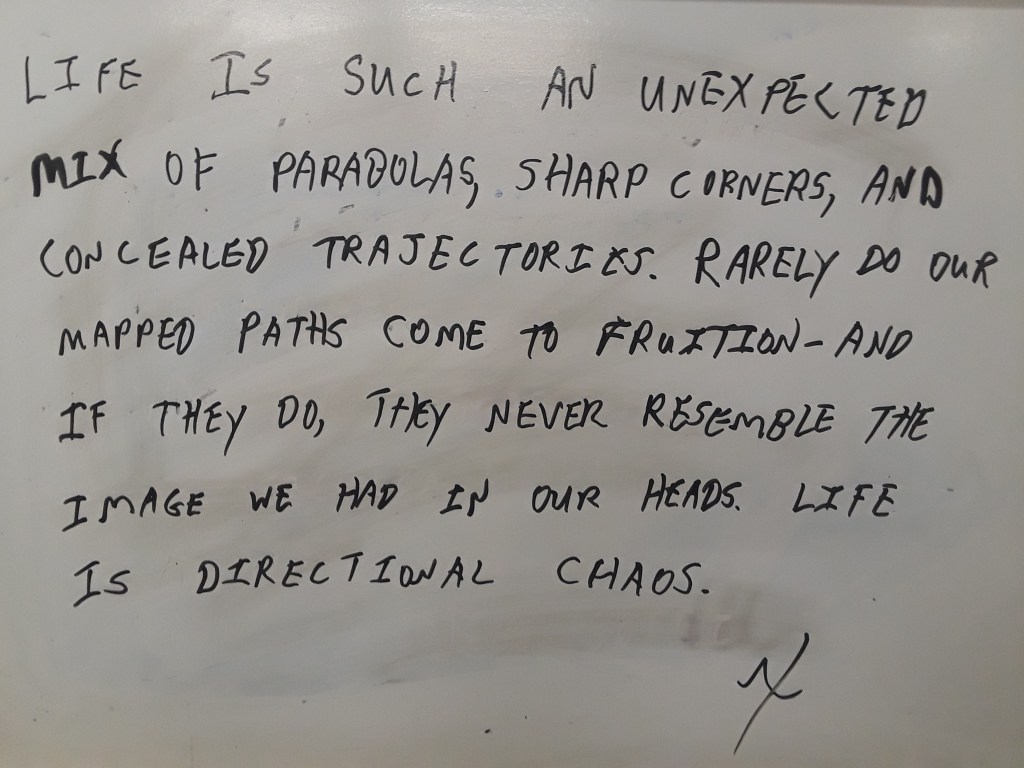 LIFE IS SUCH AN UNEXPECTED
MIX OF PARABOLAS, SHARP CORNERS, AND
CONCEALED TRAJECTORIES. RARELY DO OUR
MAPPED PATHS COME TO FRUITION - AND
IF THEY DO, THEY NEVER RESEMBLE THE
IMAGE WE HAD IN OUR HEADS. LIFE
IS DIRECTIONAL CHAOS.